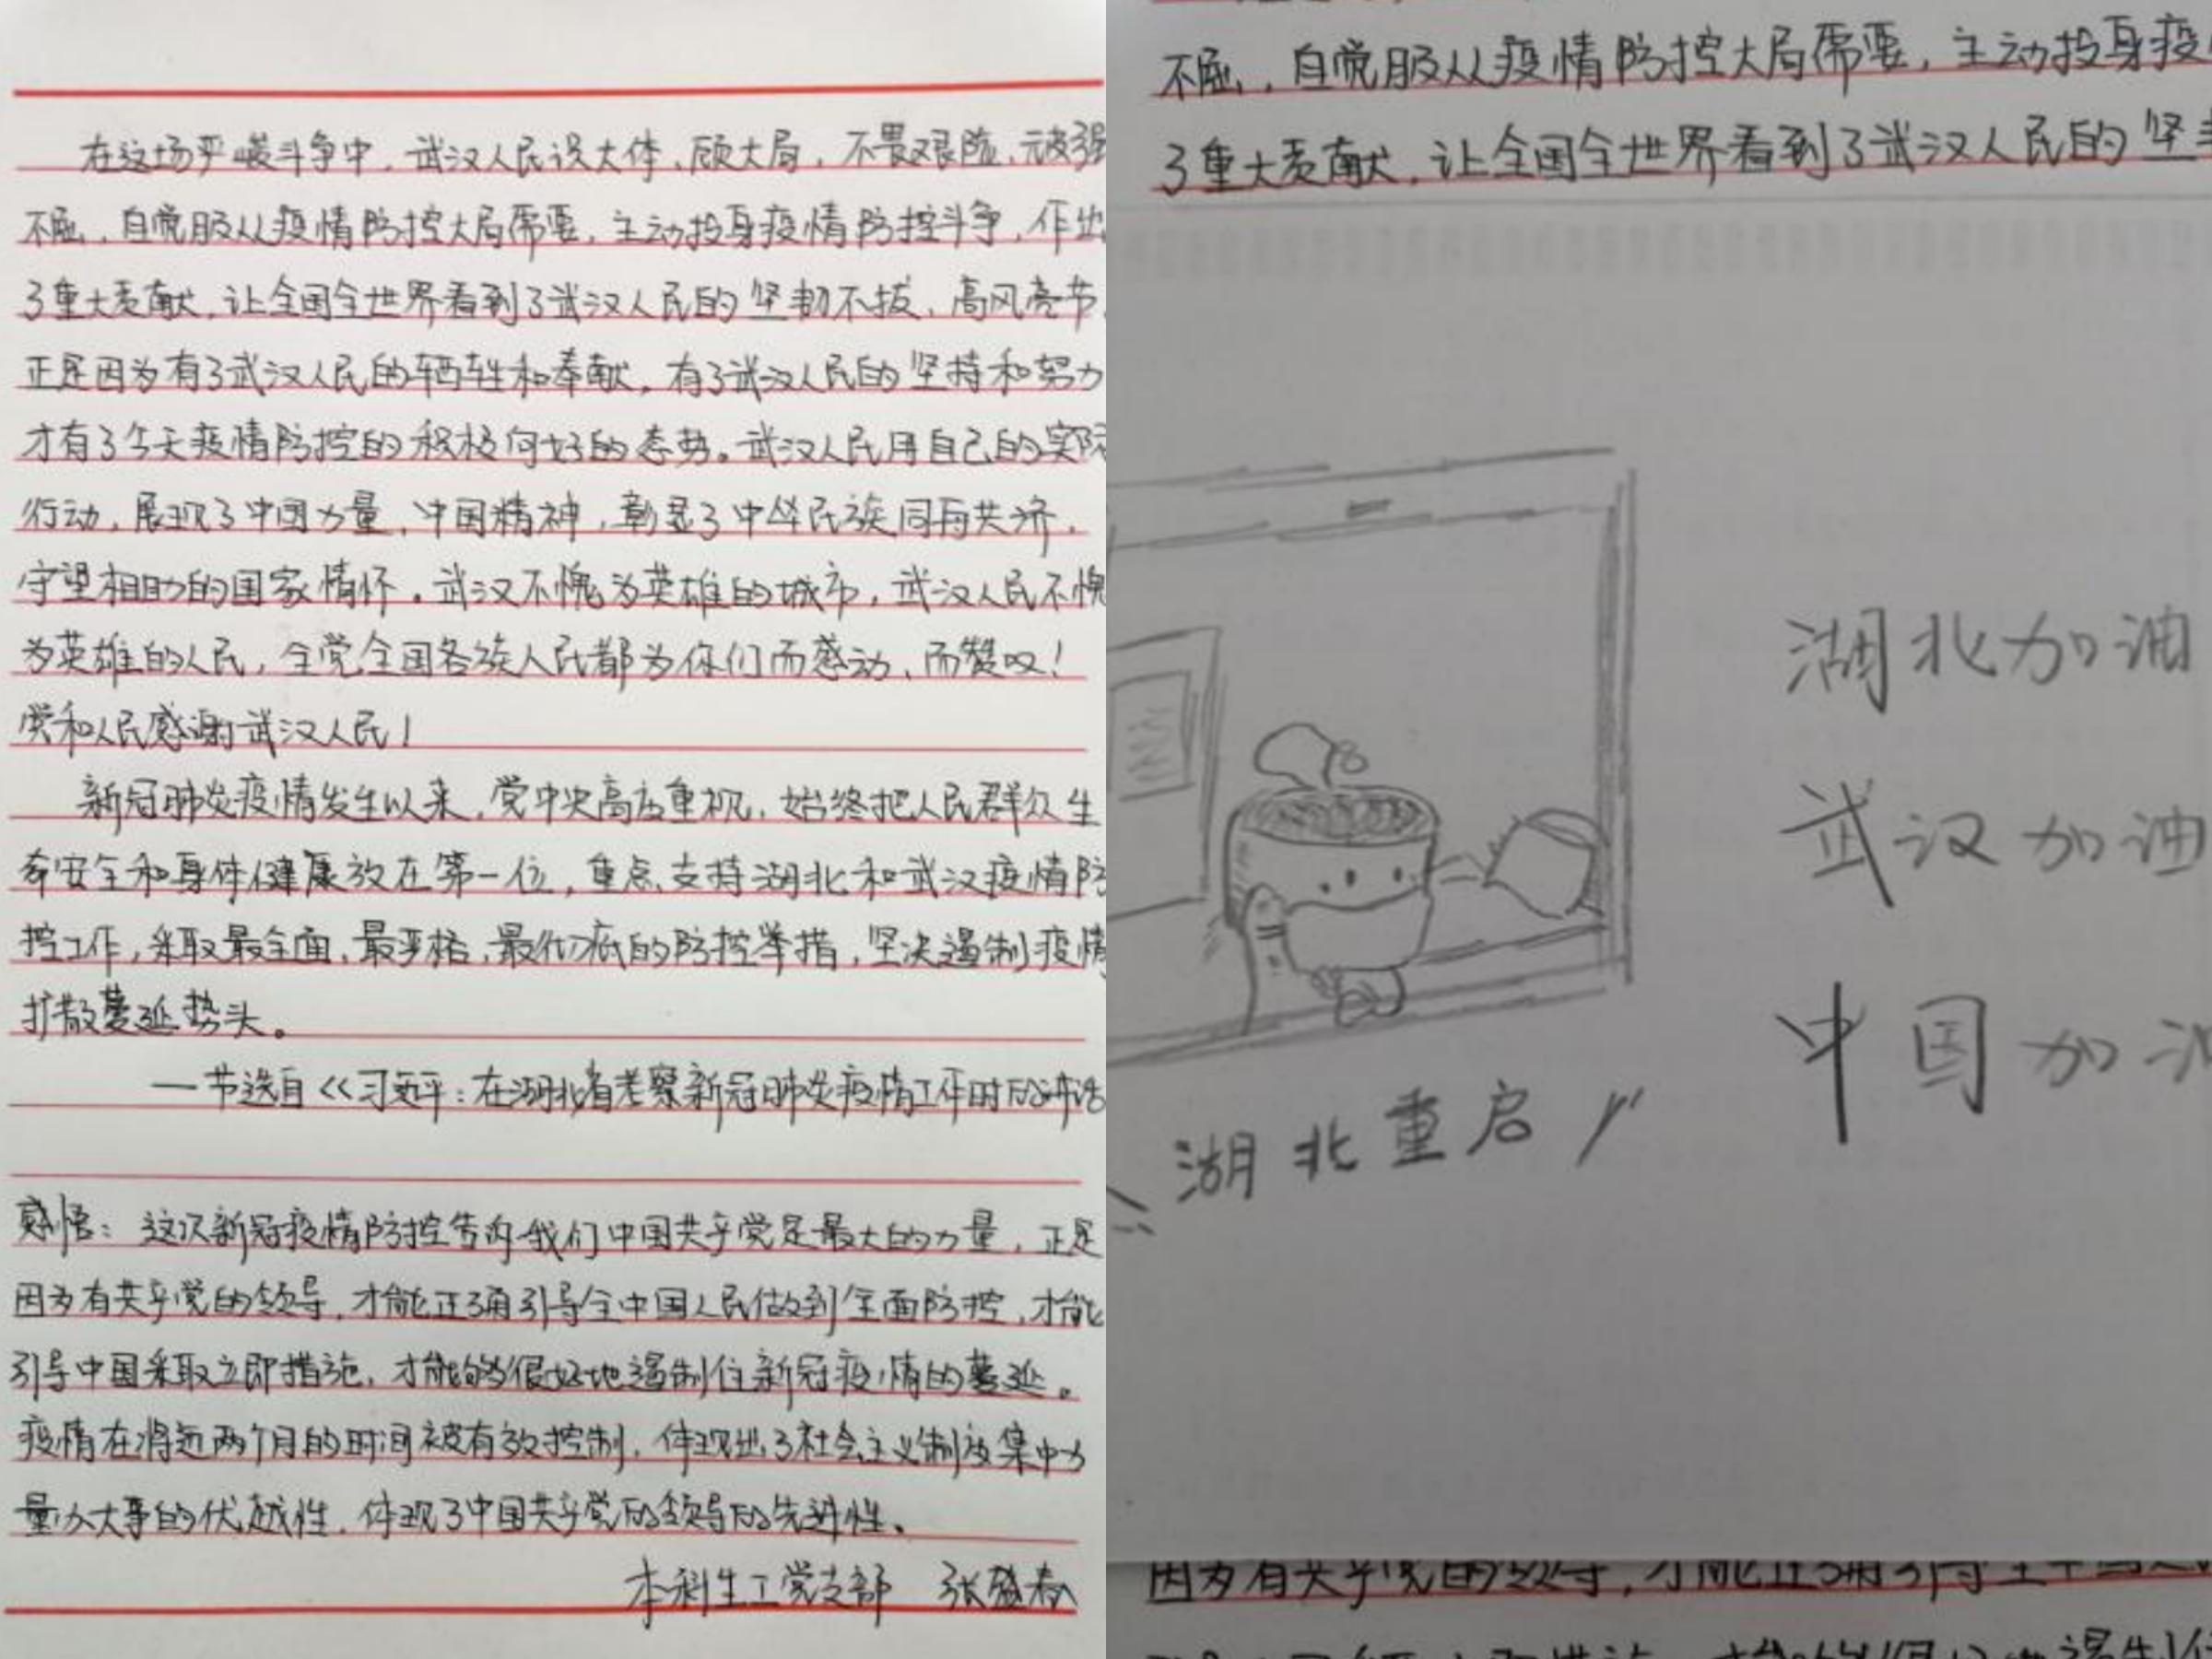 在这场严峻斗争中，武汉人民识大体、顾大局，不畏艰险、顽强
不屈，自觉服从疫情防控大局需要，主动投身疫情防控斗争，作出
了重大贡献，让全国全世界看到了武汉人民的坚韧不拔、高风亮节。
正是因为有了武汉人民的牺牲和奉献，有了武汉人民的坚持和努力
才有了今天疫情防控的积极向好的态势。武汉人民用自己的实际
行动，展现了中国力量、中国精神，彰显了中华民族同舟共济、
守望相助的国家情怀。武汉不愧为英雄的城市，武汉人民不愧
为英雄的人民，全党全国各族人民都为你们而感动、而赞叹！
党和人民感谢武汉人民！
新冠肺炎疫情发生以来，党中央高度重视，始终把人民群众生
命安全和身体健康放在第一位，重点支持湖北和武汉疫情防
控工作，采取最全面、最严格、最彻底的防控举措，坚决遏制疫情
扩散蔓延势头。
—节选自《习近平：在湖北省考察新冠肺炎疫情工作时的讲话
感悟：这次新冠疫情防控告诉我们中国共产党是最大的力量，正是
因为有共产党的领导，才能正确引导全中国人民做到全面防控，才能
引导中国采取立即措施，才能够很好地遏制住新冠疫情的蔓延。
疫情在将近两个月的时间被有效控制，体现出了社会主义制度集中力
量办大事的优越性，体现了中国共产党的领导的先进性。
本科生工党支部 张盛春
不屈，自觉服从疫情防控大局需要，主动投身疫
了重大贡献，让全国全世界看到了武汉人民的坚
湖北加油
武汉加油
中国加油
湖北重启
因为有共产党的领导，才能正确引导全中国人